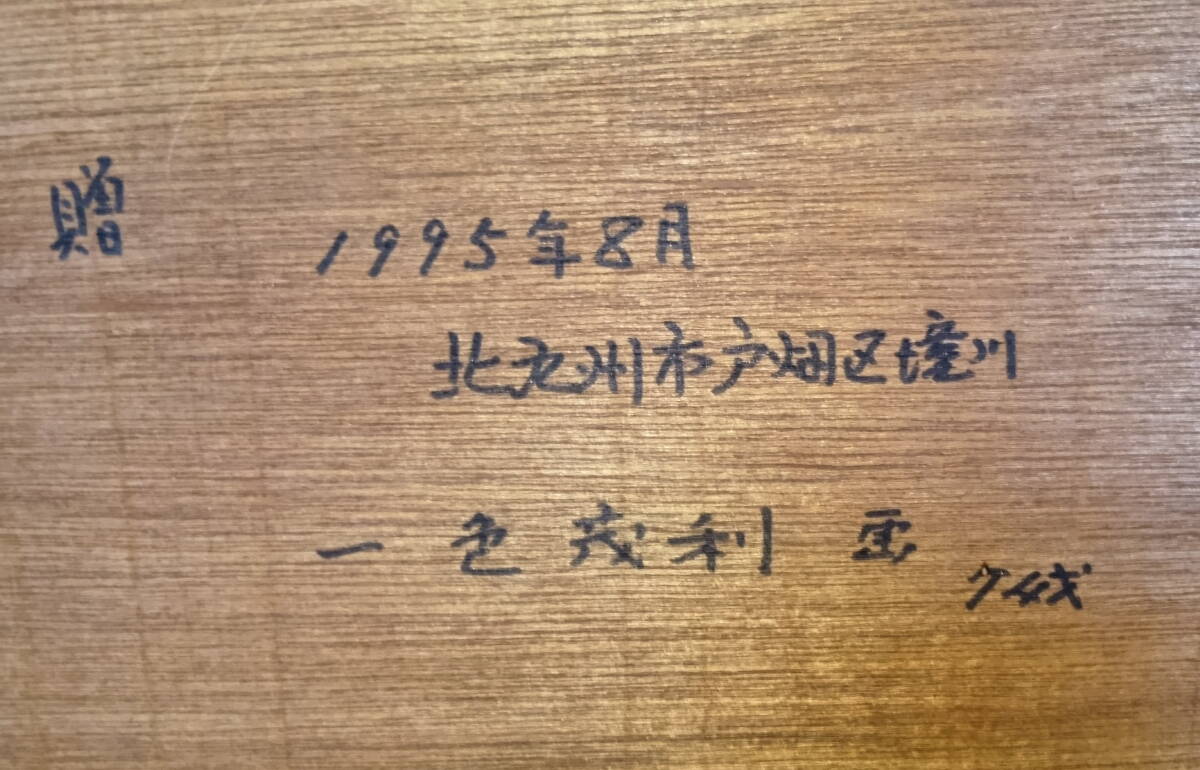 贈
1995年8月
北九州市戸畑区境川
一色茂利 画
74才